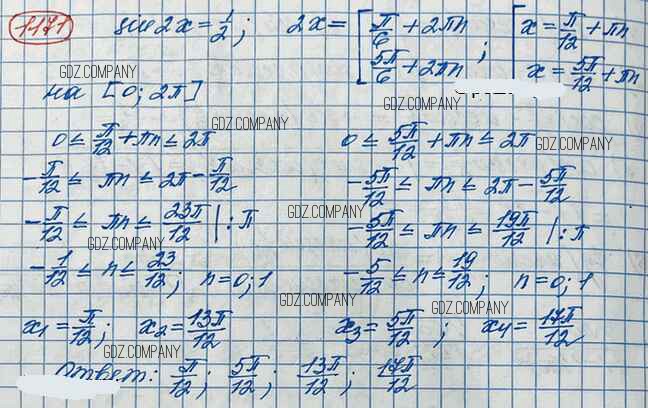 1171 sin 2x = 1/2; 2x = [ π/6 + 2πn ; 5π/6 + 2πn ; [ x = π/12 + πn ; x = 5π/12 + πn
GDZ.COMPANY
на [0; 2π]
GDZ.COMPANY
GDZ.COMPANY
0 ≤ π/12 + πn ≤ 2π
0 ≤ 5π/12 + πn ≤ 2π
GDZ.COMPANY
-π/12 ≤ πn ≤ 2π - π/12
-5π/12 ≤ πn ≤ 2π - 5π/12
GDZ.COMPANY
-π/12 ≤ πn ≤ 23π/12 |: π
-5π/12 ≤ πn ≤ 19π/12 |: π
GDZ.COMPANY
-1/12 ≤ n ≤ 23/12; n = 0; 1
-5/12 ≤ n ≤ 19/12; n = 0; 1
GDZ.COMPANY
GDZ.COMPANY
x1 = π/12; x2 = 13π/12
x3 = 5π/12; x4 = 17π/12
GDZ.COMPANY
Ответ: π/12; 5π/12; 13π/12; 17π/12